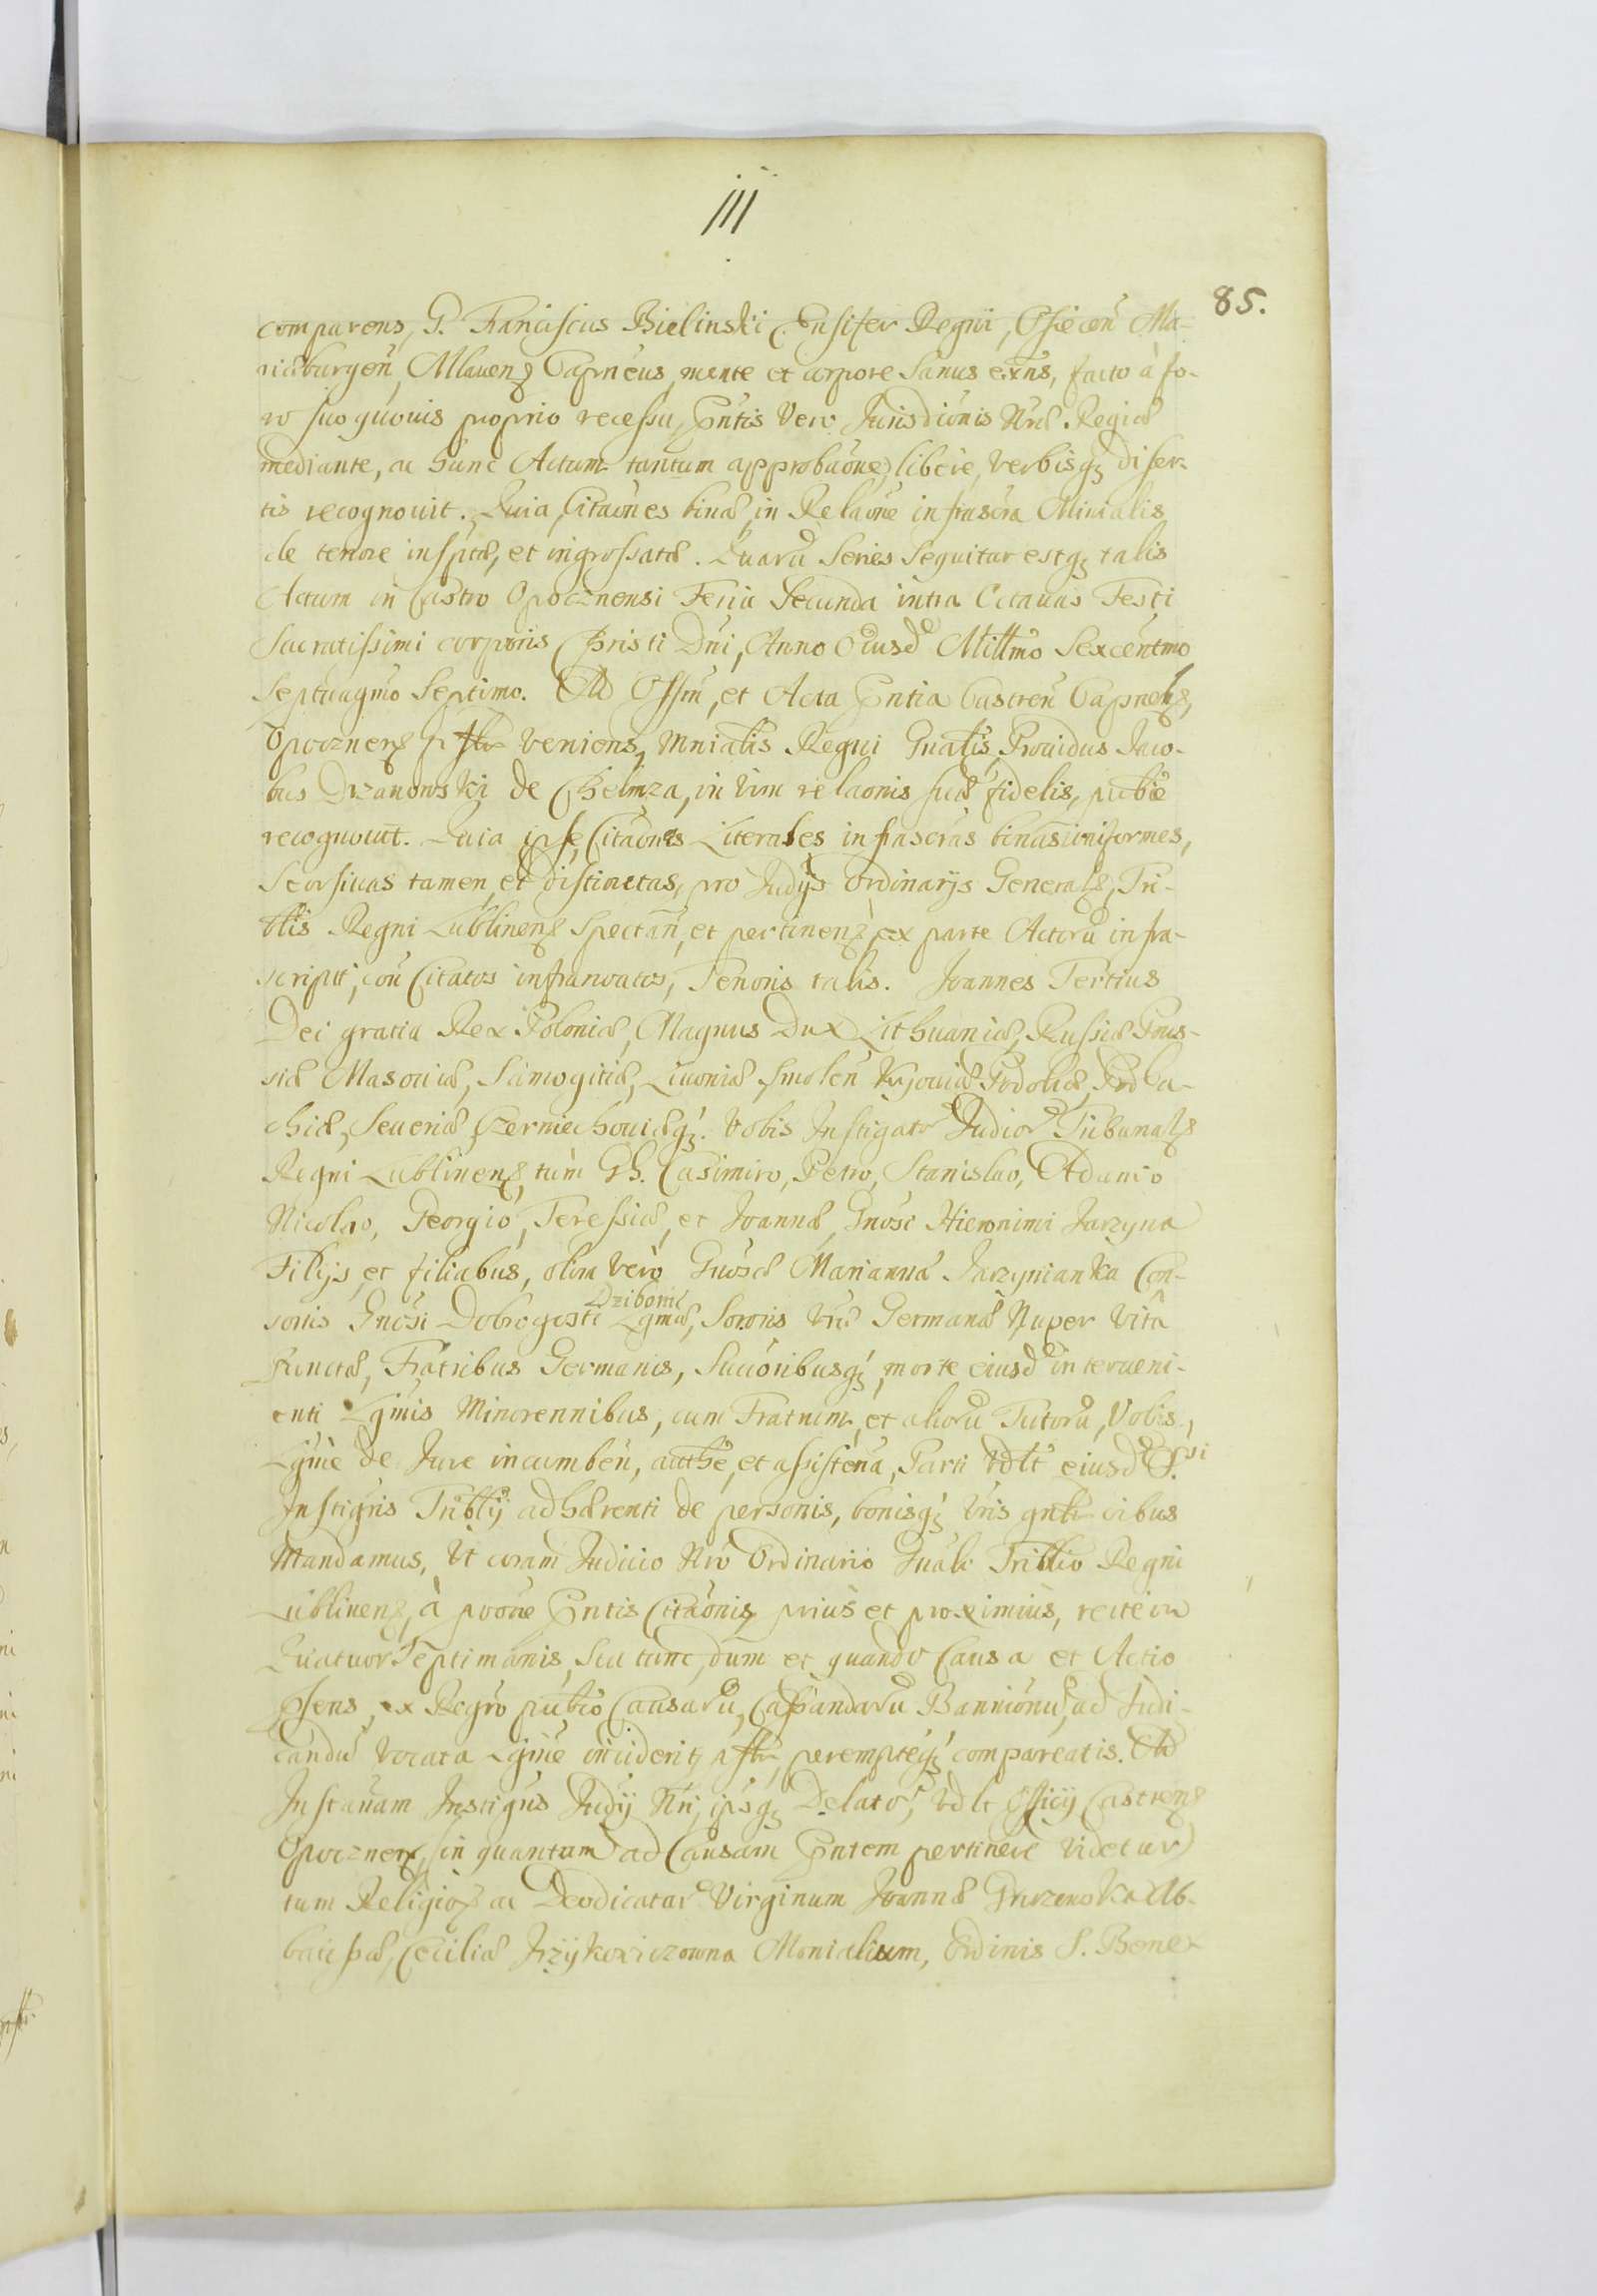 111
85.
comparens, G. Franciscus Bielinski Ensifer Regni, Osiecen Ma-
riaeburgen, Mlavens Capneus, mente et corpore Sanus exns, facto à fo-
ro suo quovis proprio recessu, Pntis Vero Jurisdionis Nrae Regiae
mediante, ac hunc Actum tantum approbaone, libere, verbisq diser-
tis recognovit. Quia Citaones binae in Relaone infrascra Minialis
de tenore insptae, et ingrossatae. Quaru Series Sequitur estq talis
Actum in Castro Opocznensi Feria Secunda intra Octavas Festi
Sacratissimi corporis Christi Dni, Anno Eiusd Millmo Sexcentmo
Septuagmo Septimo. Ad Offm, et Acta Pntia Castren Capnelia
Opocznens veniens, Mnialis Regni Gnalis, Providus Jaco-
bus Drzanowski de Chelmza, in Vim relaonis suae fidelis, publice
recognovit. Quia ipse Citaones Literales infrascras binas uniformes,
Seorsivas tamen, et distinctas, pro Judijs Ordinarijs Generals, Tri-
blis Regni Lublinens Spectan, et pertinens, ex parte Actoru infra-
scripti, con Citatos infranoatos, Tenoris talis. Joannes Tertius
Dei gratia Rex Poloniae, Magnus Dux Lithuaniae, Russiae Prus-
siae Masoviae, Samogitiae, Livoniae, Smolen Kijoviae Podoliae, Podla-
chiae, Severiae, Czerniechoviaeq. Vobis Instigator Judior Tribunals
Regni Lublinens, tùm Gh. Casimiro, Petro, Stanislao, Adamo
Nicolao, Georgio, Teressiae, et Joannae, Gnosi Hieronimi Jarzyna
Filijs, et filiabus, olim verò Gnosae Mariannae Jarzynianka Con-
Dziboni
sortis Gnosi Dobrogosti Lgmae, Sororis Vrae Germanae Nuper Vitâ
functae, Fratribus Germanis, Succoribusq, morte eiusd interveni-
enti Lgmis Minorennibus, cum Fratrum, et alioru Tutoru, Vobis,
Lgme de Jure incumben, authe, et assistena, Parti vdlt eiusd
Instigris Triblij adhaerenti de personis, bonisq Vris gnlr oibus
Mandamus, Ut coram Judicio Nro Ordinario Gnali Triblio Regni
Lublinens, à poone Pntis Citaonis prius et proximius, recte in
Quatuor Septimanis, Seu tunc, dum et quando Causa et Actio
Psens, ex Regro publico Causaru, Cassandaru Bannionu, ad Judi-
candu vocata Lgme inciderit, perempteq compareatis. Ad
Instanam Instigris Judij Nri, ipsq Delator, vdlt Officij Castrens
Opocznens, in quantum ad Causam Pntem pertinere videtur
tum Religios ac Deodicatar Virginum Joannae Gnrzenska Ab-
batissae, Ceciliae Jrzykowiczowna Monialium, Ordinis S. Bene-